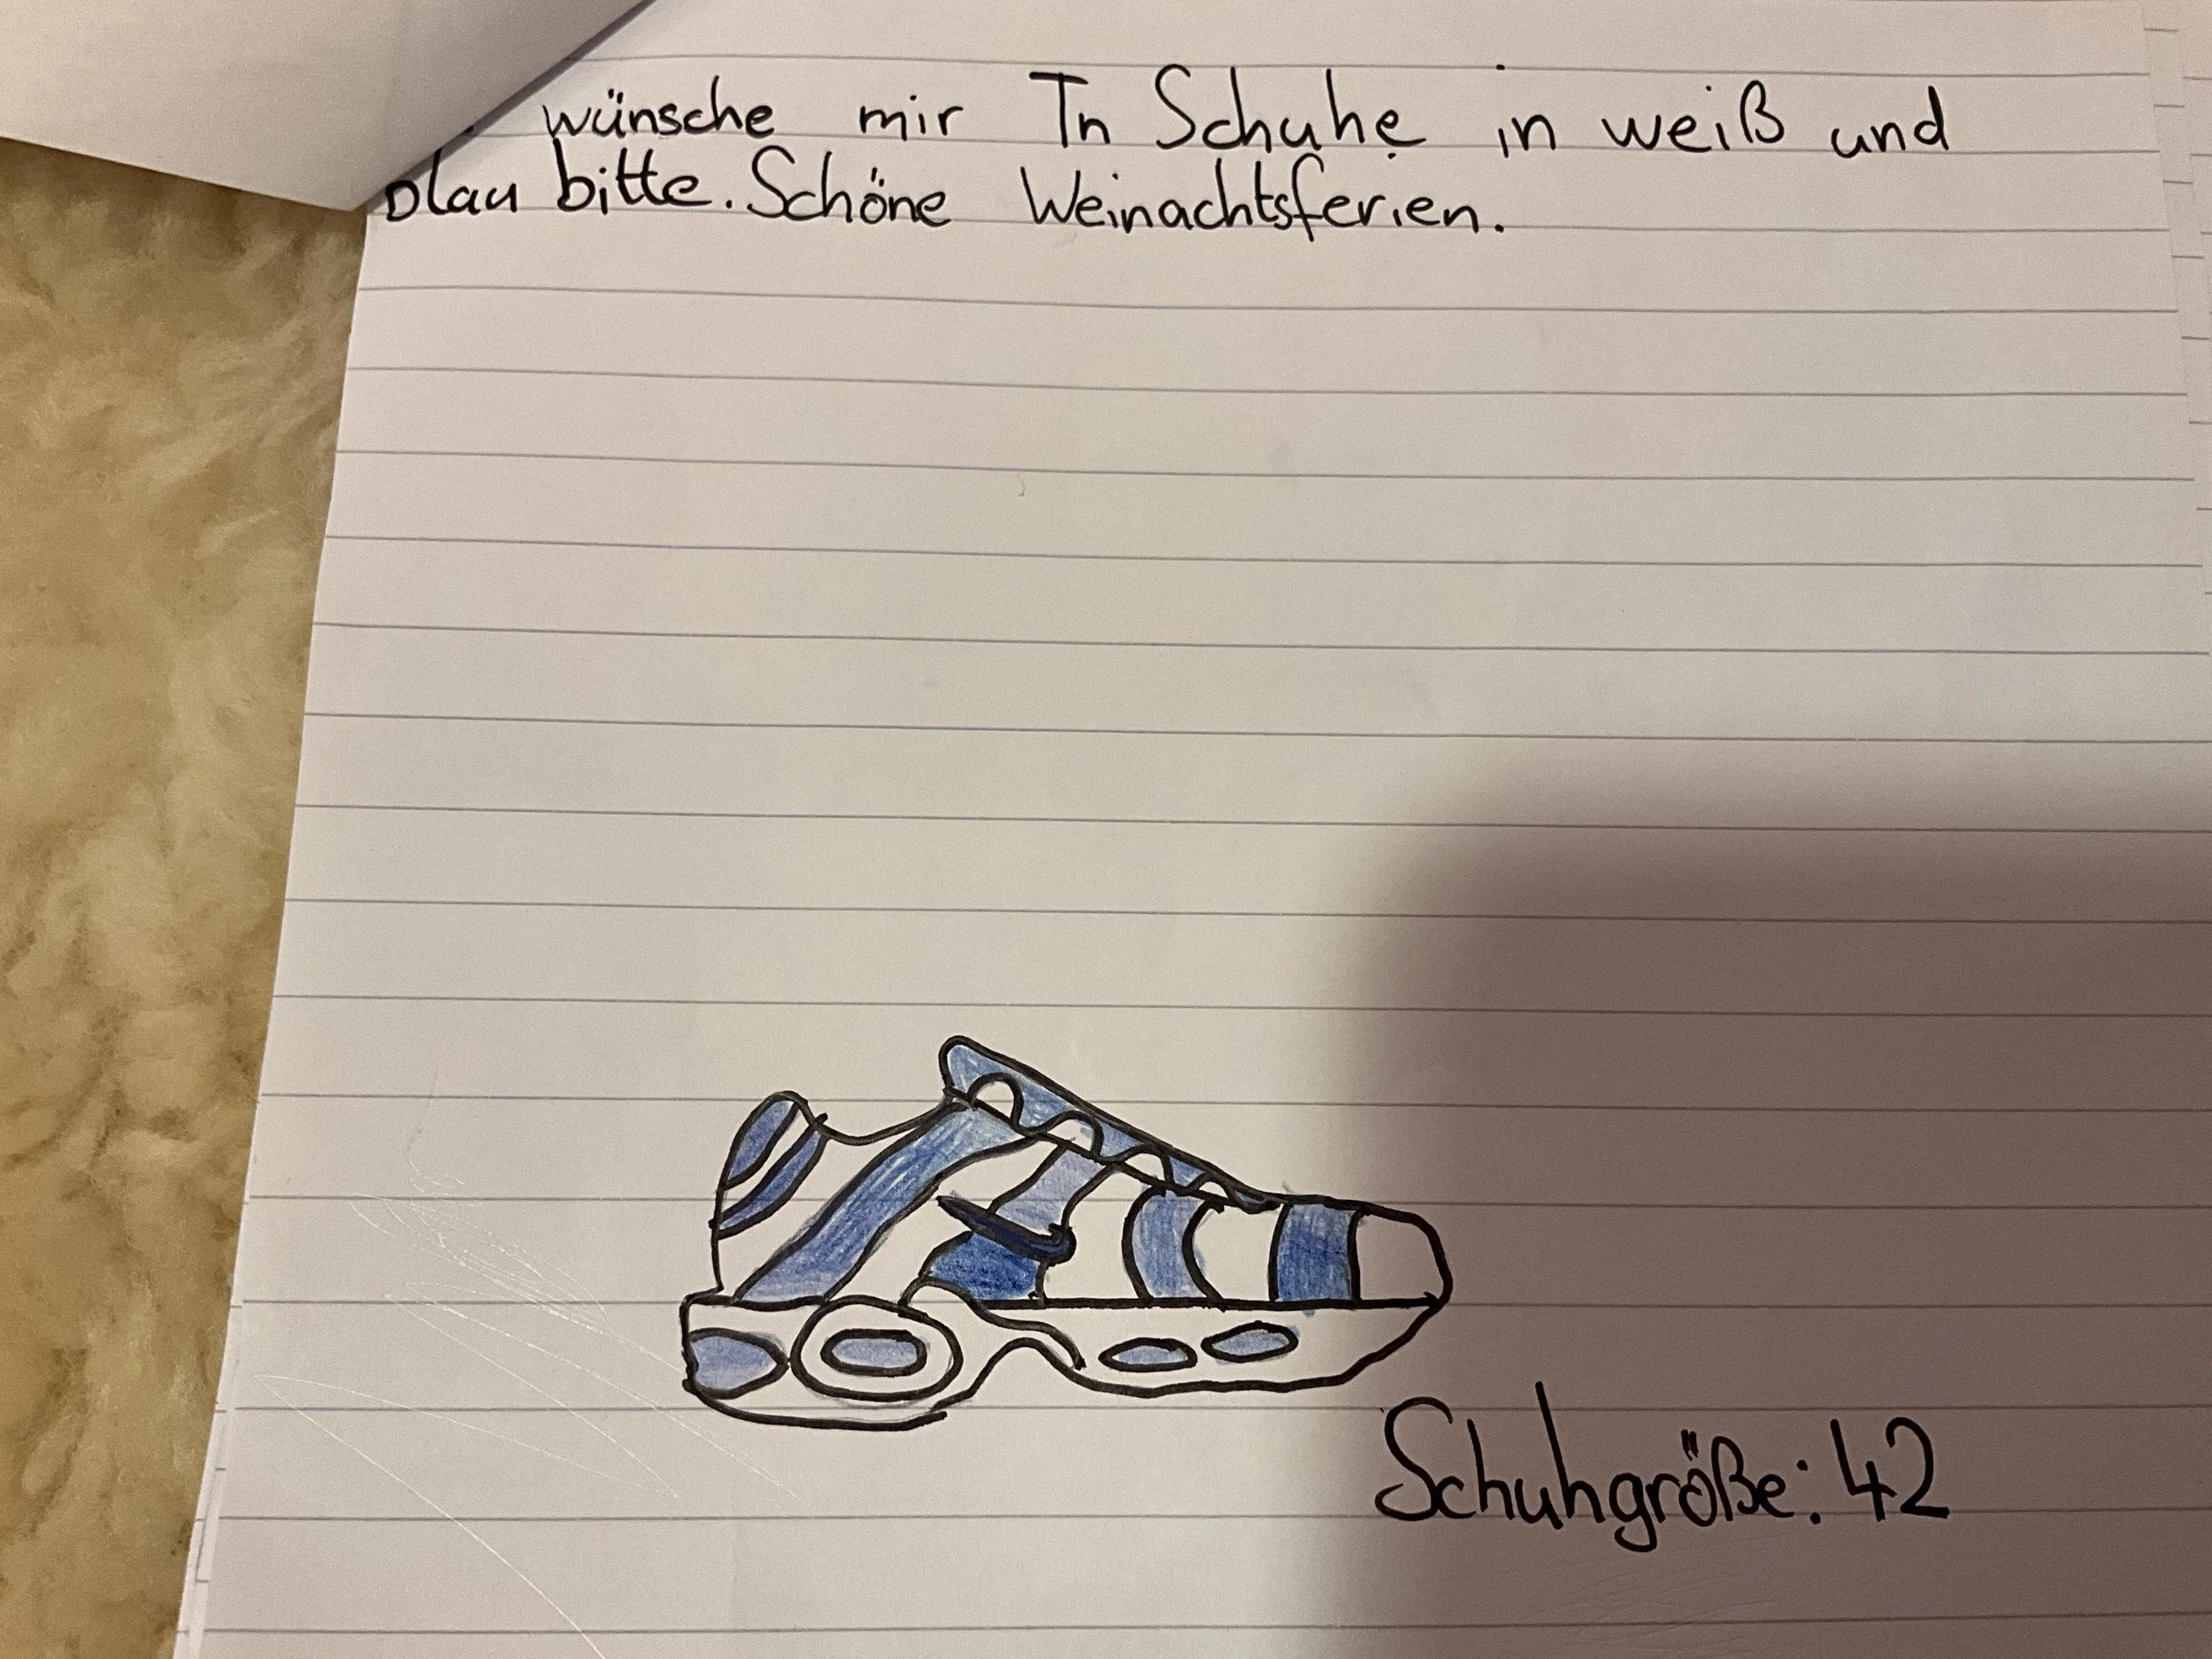 wünsche mir Tn Schuhe in weiß und
blau bitte. Schöne Weinachtsferien.
Schuhgröße: 42